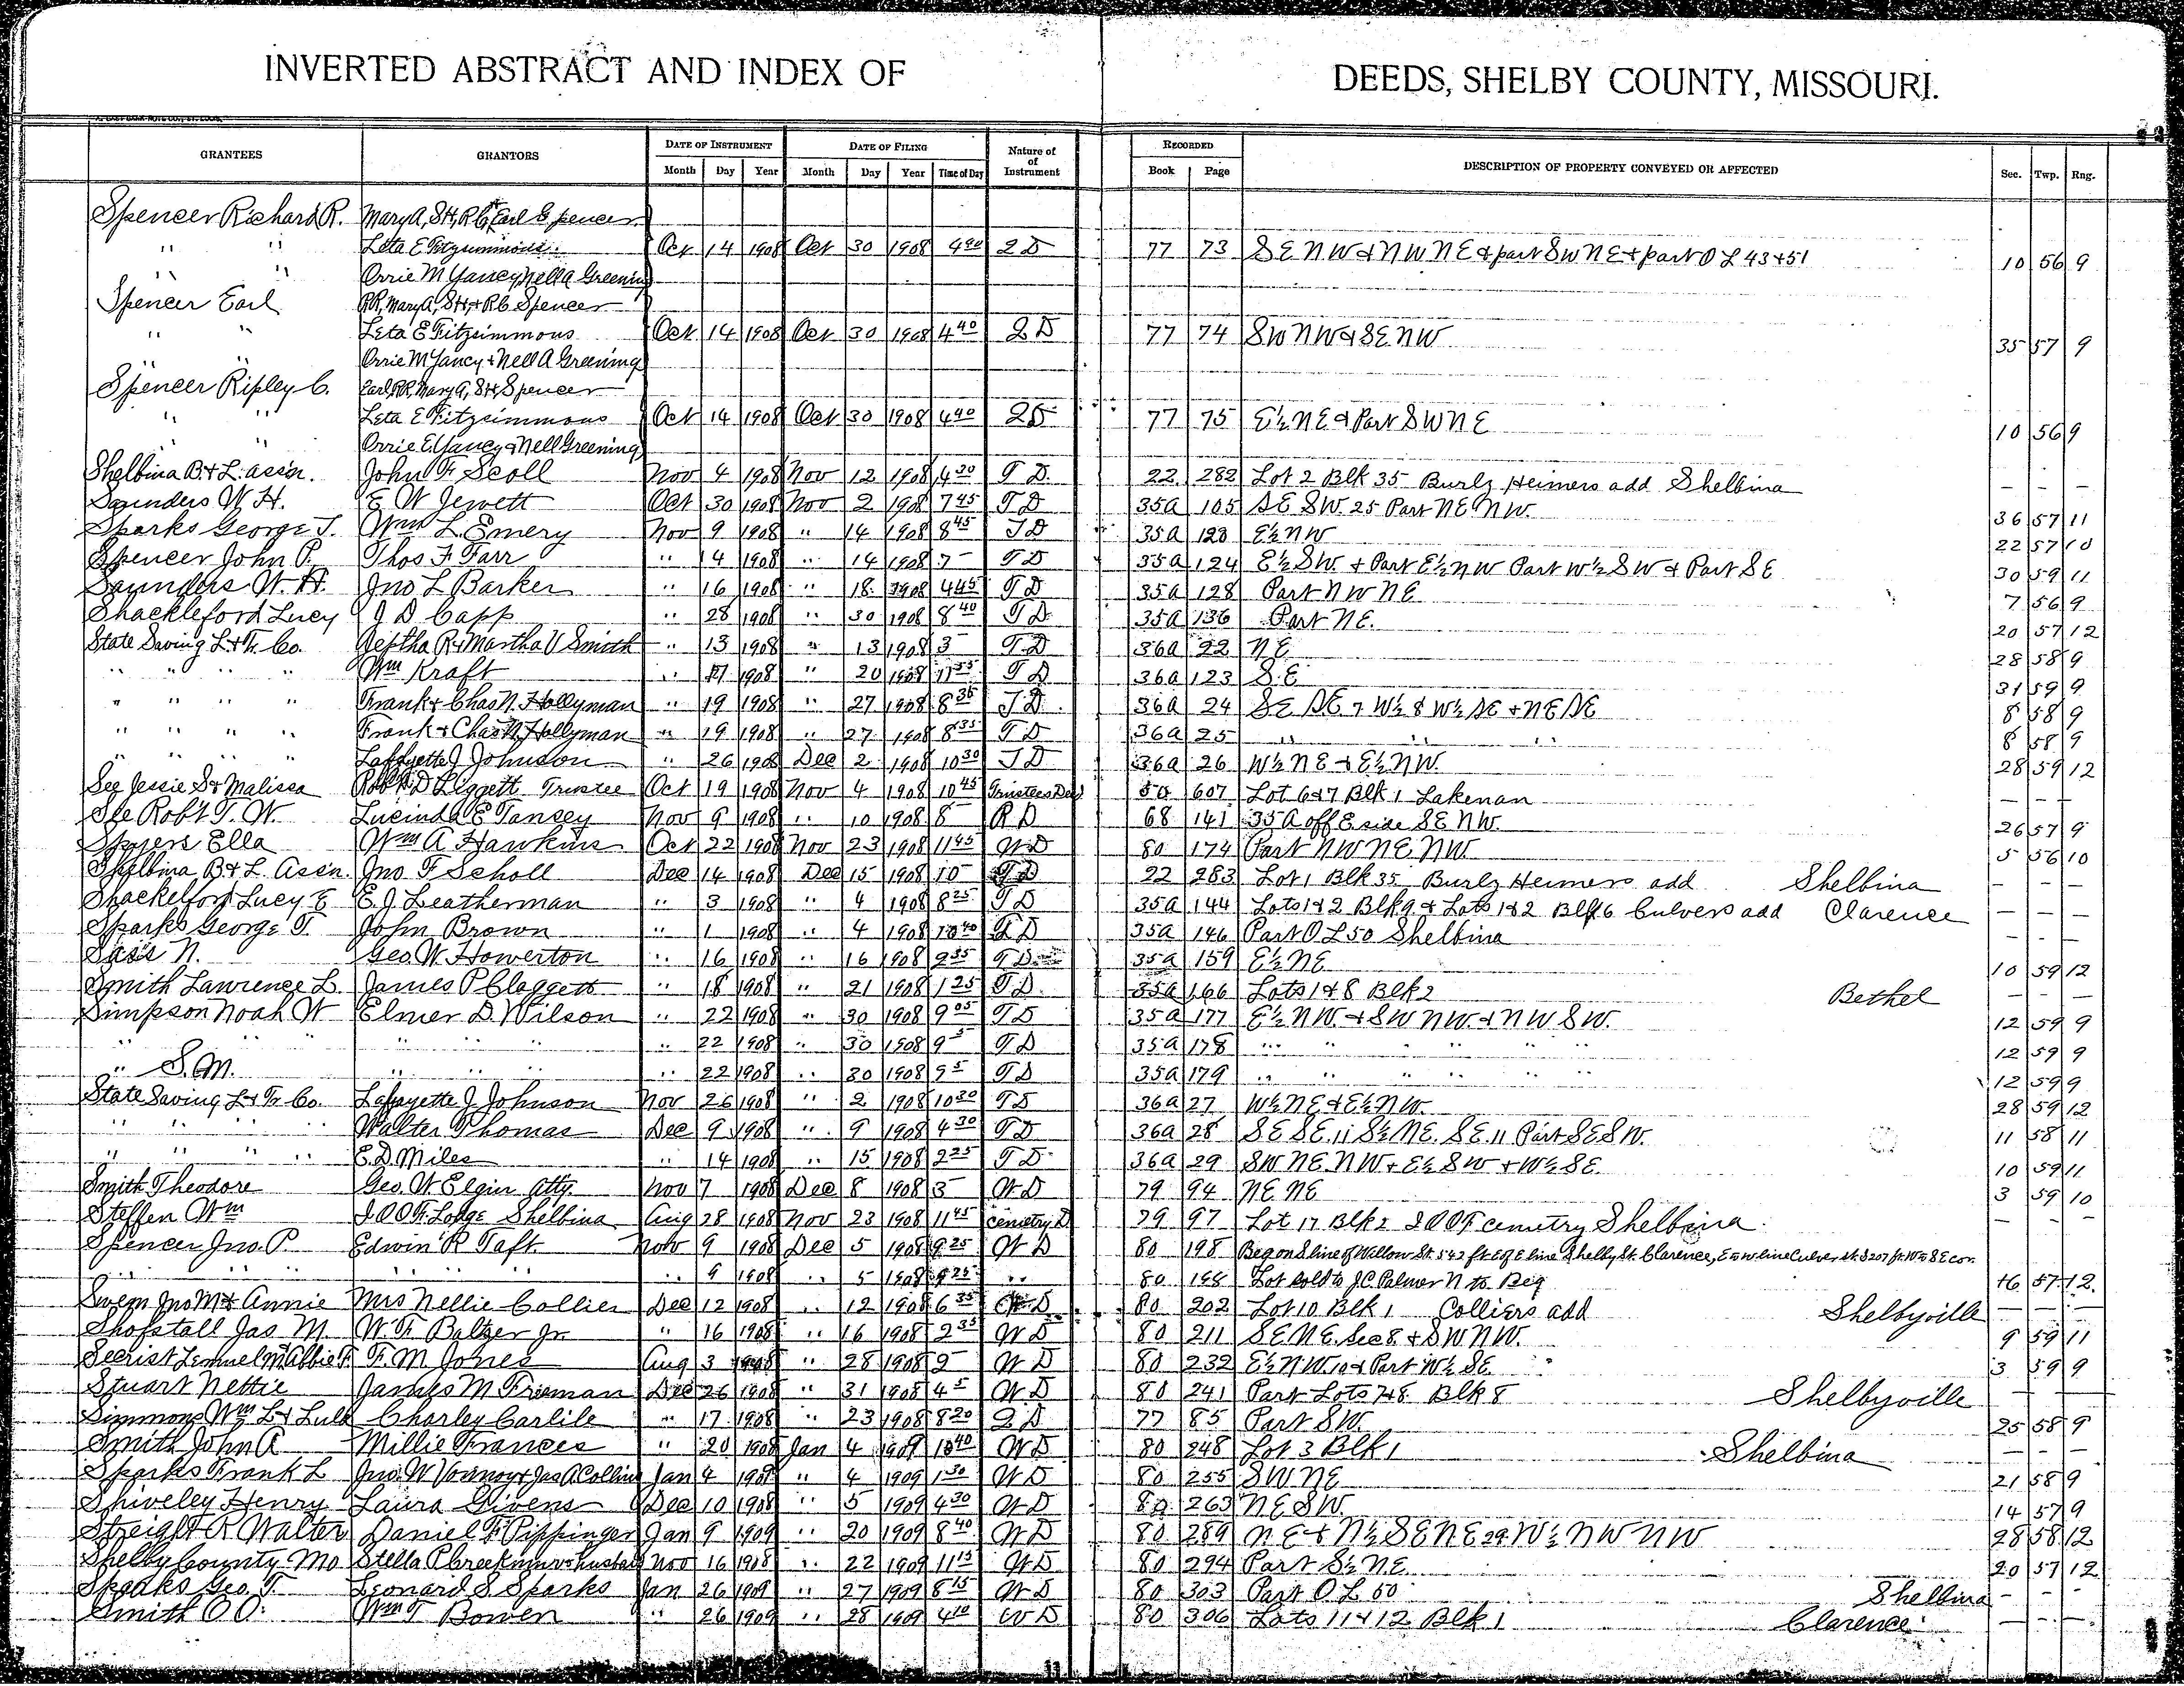 INVERTED ABSTRACT AND INDEX OF DEEDS, SHELBY COUNTY, MISSOURI.
GRANTEES GRANTORS DATE OF INSTRUMENT DATE OF FILING Nature of of Instrument RECORDED DESCRIPTION OF PROPERTY CONVEYED OR AFFECTED Sec. Twp. Rng.
Month Day Year Month Day Year Time of Day Book Page
Spencer Richard R. Mary A, S H, R C, + Earl Spencer
" " Leta E Fitzsimmons Oct 14 1908 Oct 30 1908 4 40 2 D 77 73 S E N W & N W N E & part S W N E + part O L 43 + 51 10 56 9
" " Orrie M Yancy, Nell A Greening
Spencer Earl R R, Mary A, S H, + R C Spencer
" " Leta E Fitzsimmons Oct 14 1908 Oct 30 1908 4 40 2 D 77 74 S W N W & S E N W 35 57 9
" " Orrie M Yancy + Nell A Greening
Spencer Ripley C. Earl, R R, Mary A, S H, Spencer
" " Leta E Fitzsimmons Oct 14 1908 Oct 30 1908 4 40 2 D 77 75 E ½ N E & Part S W N E 10 56 9
" " Orrie E Yancy & Nell Greening
Shelbina B. & L. assn. John F Scoll Nov 4 1908 Nov 12 1908 4 30 T D 22 282 Lot 2 Blk 35 Burlz Heimers add Shelbina – – –
Saunders W. H. E W Jewett Oct 30 1908 Nov 2 1908 7 45 T D 35a 105 S E S W. 25 Part N E N W. 36 57 11
Sparks George T. Wm L. Emery Nov 9 1908 " 14 1908 8 45 T D 35a 123 E ½ N W 22 57 10
Spencer John P. Thos F Farr " 4 " 14 1908 7 – T D 35a 124 E ½ S W. + Part E ½ N W Part W ½ S W & Part S E 30 59 11
Saunders W. H. Jno L Barker " 16 1908 " 18 1908 4 45 T D 35a 128 Part N W N E 7 56 9
Shackleford Lucy J D Capp " 28 1908 " 30 1908 8 40 T D 35a 136 Part N E. 20 57 12
State Saving L & Tr. Co. Jeptha R & Martha V Smith " 13 1908 " 13 1908 3 – T. D 36a 22 N E 28 58 9
" " " " Wm Kraft " 1908 " 20 1908 11 35 T D 36a 123 S. E 31 59 9
" " " " Frank & Chas N. Hollyman " 19 1908 " 27 1908 8 35 T D. 36a 24 S E S E 7 W ½ 8 W ½ S E + N E S E 8 58 9
" " " " Frank & Chas N Hollyman " 19 1908 " 27 1908 8 35 T D 36a 25 " " " 8 58 9
" " " " Laffayette J Johnson " 26 1908 Dec 2 1908 10 30 T D 36a 26 W ½ N E + E ½ N W. 28 59 12
See Jessie S & Malissa Robt D Liggett Trustee Oct 19 1908 Nov 4 1908 10 45 Trustees Deed 607 Lot 6 & 7 Blk 1 Lakenan – – –
See Robt T. W. Lucinda E Tansey Nov 9 1908 " 10 1908 8 – R D 68 141 35 A off E side S E N W. 26 57 9
Spyers Ella Wm A Hawkins Oct 22 1908 Nov 23 1908 11 45 W D 80 174 Part N W N E N W 5 56 10
Shelbina B & L Assn. Jno F Scholl Dec 14 1908 Dec 15 1908 10 – T D 22 283 Lot 1 Blk 35 Burlz Heimers add Shelbina – – –
Shackelford Lucy E E. J. Leatherman " 3 1908 " 4 1908 8 25 T D 35a 144 Lots 1 & 2 Blk 9 & Lots 1 & 2 Blk 6 Culvers add Clarence – – –
Sparks George T. John Brown " 1 1908 " 4 1908 10 40 T D 35a 146 Part O L 50 Shelbina – – –
Sass N. Geo. W. Howerton " 16 1908 " 16 1908 2 35 T D 35a 159 E ½ N E 10 59 12
Smith Lawrence L. James P Claggett " 18 1908 " 21 1908 1 25 T D. 35a 166 Lots 1 & 8 Blk 2 Bethel – – –
Simpson Noah W Elmer D. Wilson " 22 1908 " 30 1908 9 05 T D 35a 177 E ½ N W. & S W N W. & N W S W. 12 59 9
" " " " " " " 22 1908 " 30 1908 9 5 T D 35a 178 " " " " " 12 59 9
" S. M. " " " " 22 1908 " 30 1908 9 5 T D 35a 179 " " " " " 12 59 9
State Saving L & Tr. Co. Lafayette J Johnson Nov 26 1908 " 2 1908 10 30 T D 36a 27 W ½ N E & E ½ N W. 28 59 12
" " " " Walter Thomas Dec 9 1908 " 9 1908 4 30 T D 36a 28 S E S E. 11 S ½ N E. S E. 11 Part S E S W. 11 58 11
" " " " E. D. Miles " 14 1908 " 15 1908 2 25 T D 36a 29 S W N E N W + E ½ S W + W ½ S E. 10 59 11
Smith Theodore Geo. W Elgin atty. Nov 7 1908 Dec 8 1908 3 – W D 79 94 N E N E 3 59 10
Steffen Wm I O O F. Lodge Shelbina Aug 28 1908 Nov 23 1908 11 45 cemetry D 79 97 Lot 17 Blk 2 I O O F cemetry Shelbina – – –
Spencer Jno. P. Edwin R Taft Nov 9 1908 Dec 5 1908 9 25 W D 80 198 Beg on S line of Willow St. 542 ft. E of E line Shelby St. Clarence, E to w line Culver St. S 207 ft. W to S E cor.
" " " " " " 9 1908 " 5 1908 9 25 " 80 198 Lot sold to J. C. Palmer N to Beg 16 57 12.
Swem Jno M & Annie Mrs Nellie Collier Dec 12 1908 " 12 1908 6 35 W D 80 202 Lot 10 Blk 1 Colliers add Shelbyville – – –
Shofstall Jas M. W. F. Baltzer Jr. " 16 1908 " 16 1908 2 35 W D 80 211 S. E. N E. Sec 8 & S W N W. 9 59 11
Secrist Lemuel M. Abbie F. F. M Jones Aug 3 1908 " 28 1908 9 – W D 80 232 E ½ N W. 10 & Part W ½ S E. 3 59 9
Stuart Nettie James M Freeman Dec 26 1908 " 31 1908 4 5 W. D 80 241 Part Lots 7 & 8 Blk 8 Shelbyville – – –
Simmons Wm L & Lula Charley Carlile " 17 1908 " 23 1908 8 20 2 D 77 85 Part S W. 25 58 9
Smith John A Millie Frances " 20 1908 Jan 4 1909 10 40 W D 80 248 Lot 3 Blk 1 Shelbina – – –
Sparks Frank L Jno. W Vannoy & Jas A Collins Jan 4 1909 " 4 1909 1 30 W D 80 255 S W N E 21 58 9
Shiveley Henry Laura Givens Dec 10 1908 " 5 1909 4 30 W D 80 263 N E S W. 14 57 9
Streight R Walter Daniel F Pippinger Jan 9 1909 " 20 1909 8 40 W D 80 289 N. E + N ½ S E N E 29 W ½ N W N W 28 58 12
Shelby County Mo Stella P. husband Nov 16 1908 " 22 1909 11 15 W D 80 294 Part S ½ N E 20 57 12
Sparks Geo. T. Leonard S Sparks Jan 26 1909 " 27 1909 8 15 W D 80 303 Part O L 50 Shelbina – – –
Smith O O. Wm T Bowen " 26 1909 " 28 1909 4 10 W D 80 306 Lots 11 & 12 Blk 1 Clarence – – –